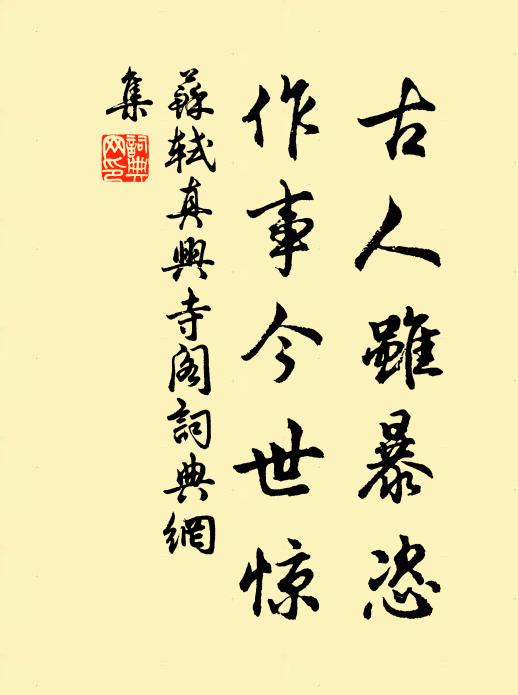 古人雖暴恣
作事今世惊
蘇軾真興寺阁詞典網
集
詞典
网印